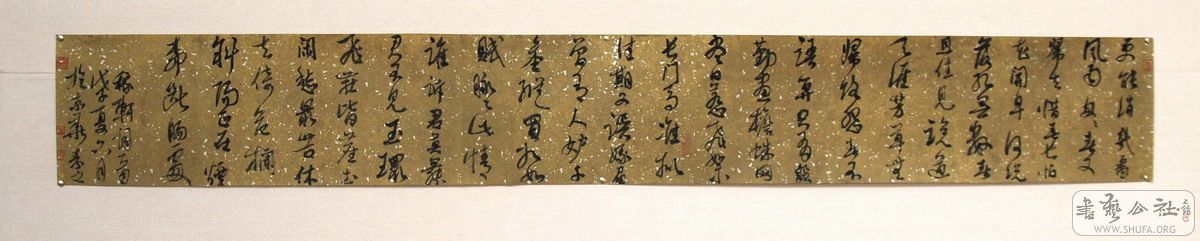 更能消幾番
風雨匆々春又
歸去惜春長怕
花開早何況
落紅無數春
且住見說道
天涯芳草無
歸路怨春不
語算只有殷
勤畫檐蛛網
盡日惹飛絮
長門事準擬
佳期又誤蛾眉
曾有人妒千
金縱買相如
賦脈々此情
誰訴君莫舞
君不見玉環
飛燕皆塵土
閑愁最苦休
去倚危欄
斜陽正在煙
柳斷腸處
稼軒詞一首
戊子夏六月
於京華
書藝公社
WWW.SHUFA.ORG